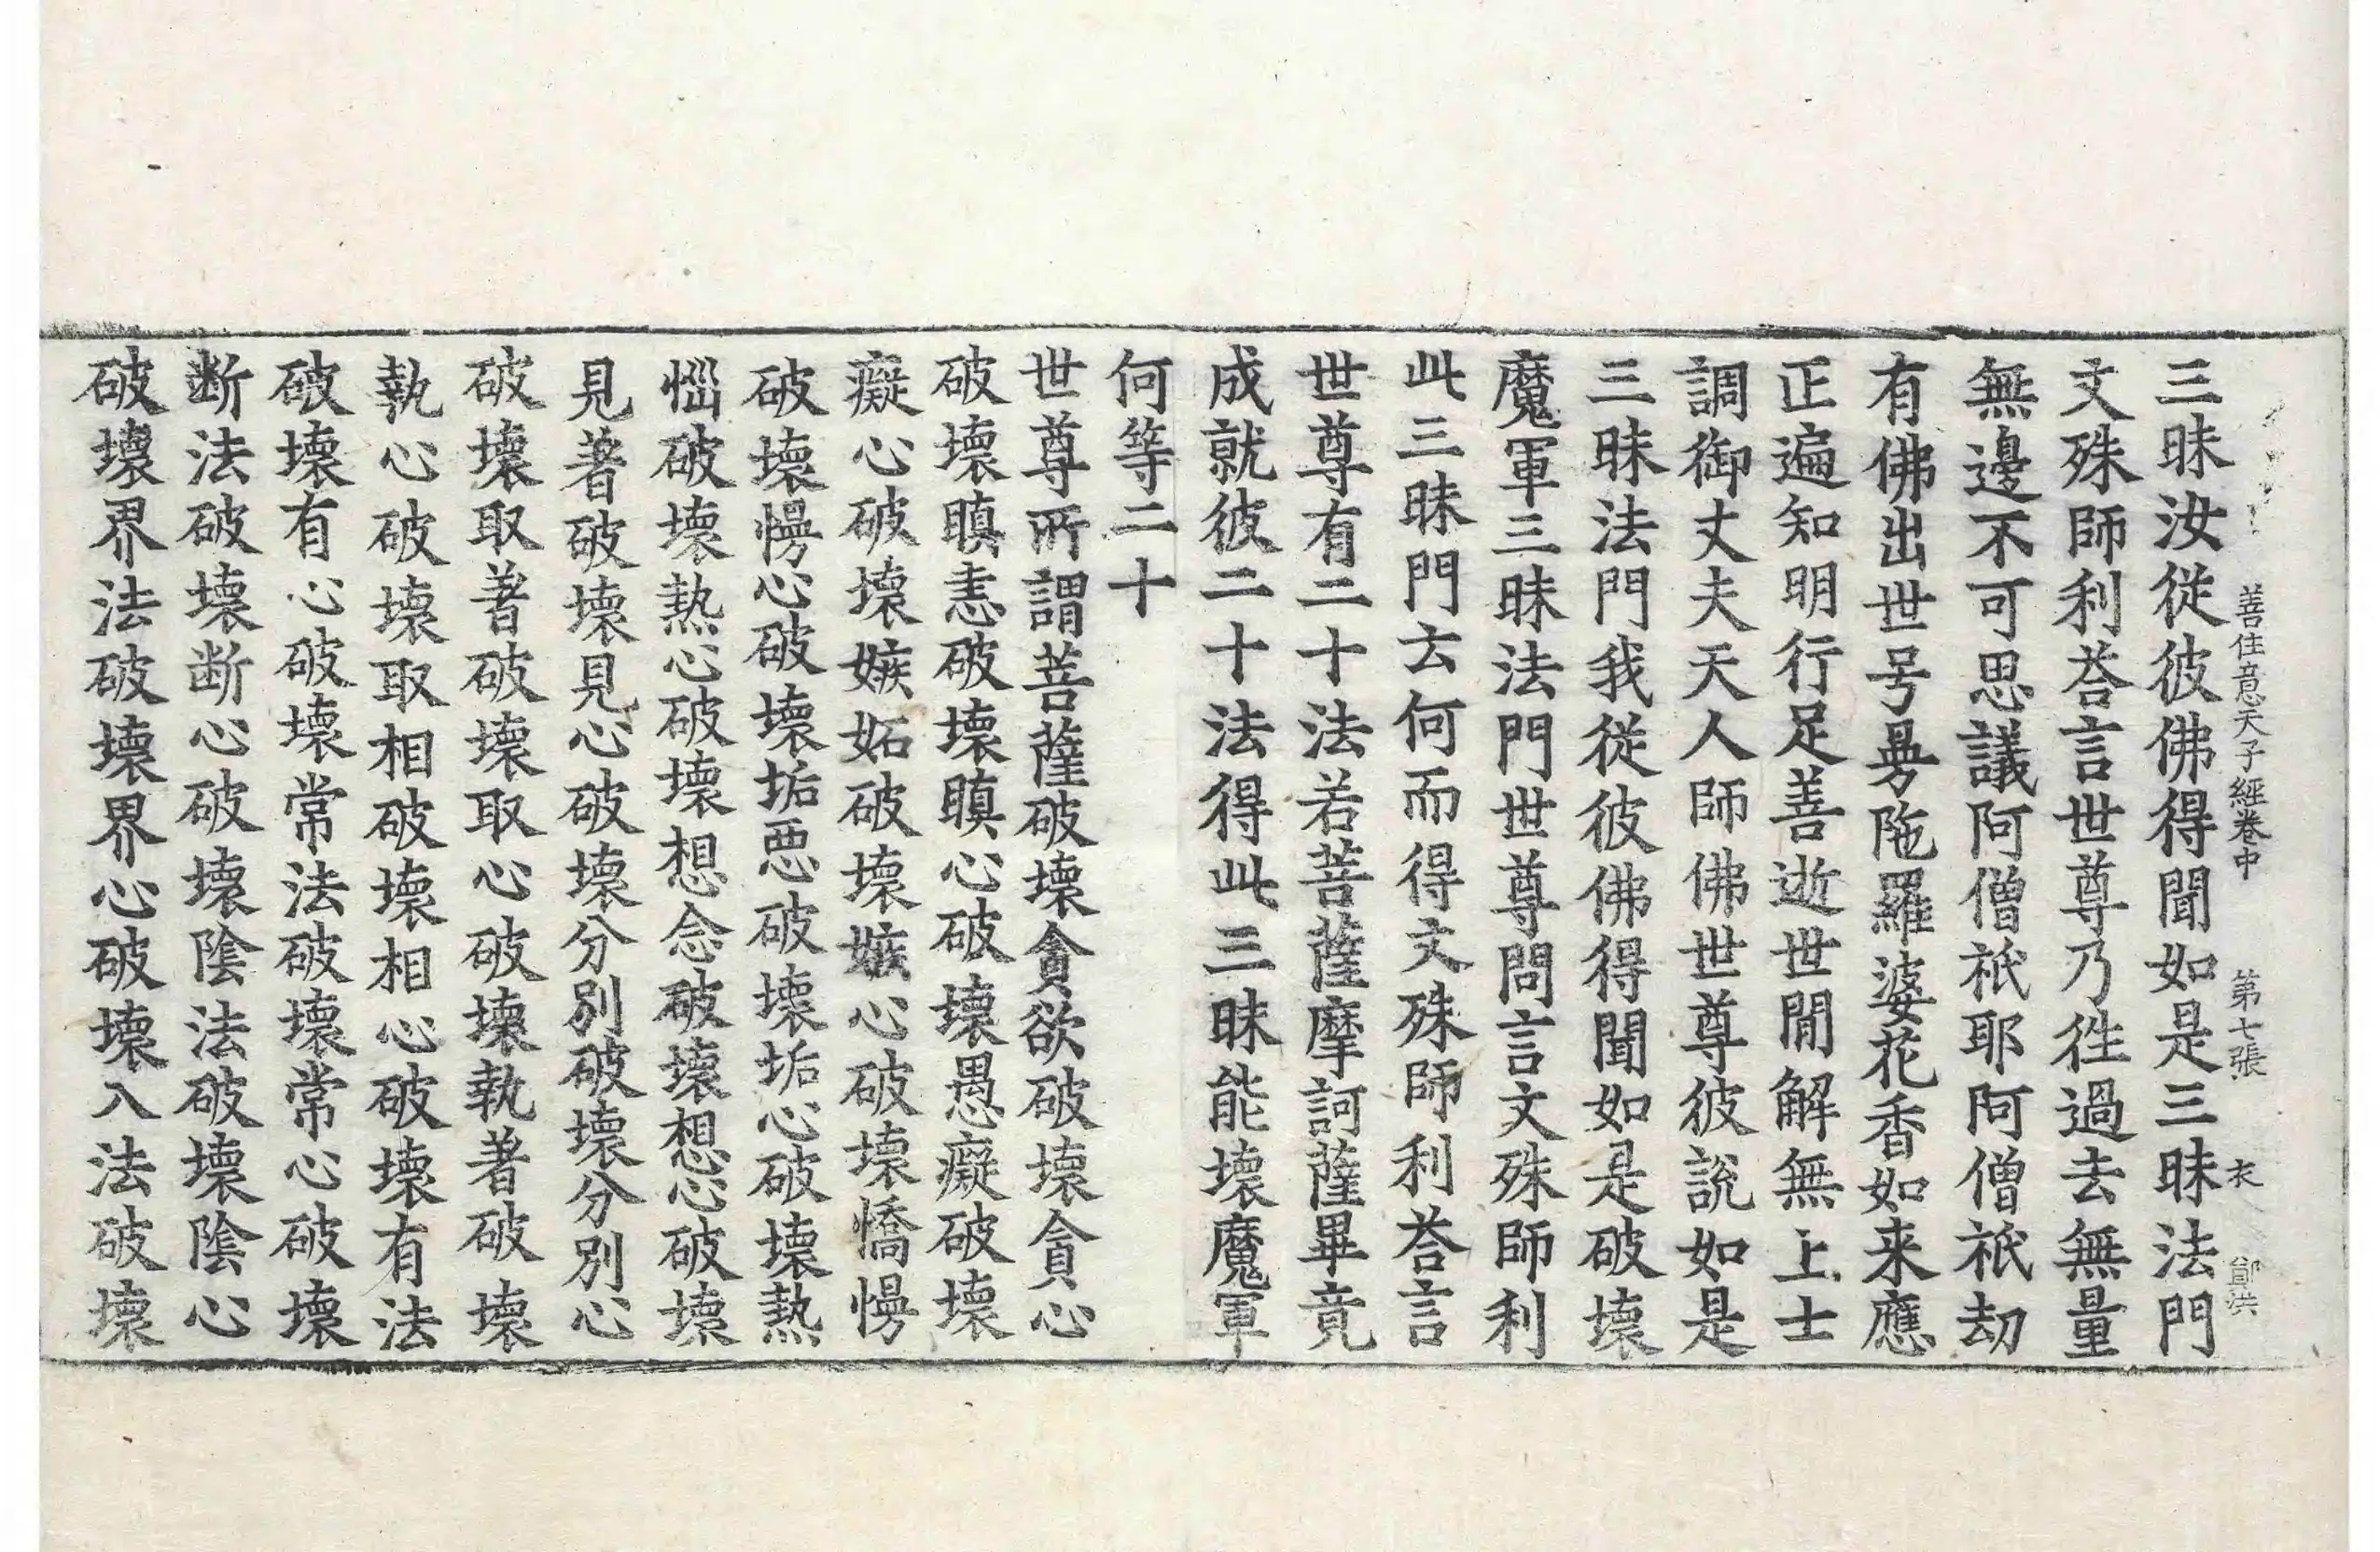 善住意天子經卷中 第七張 衣
三昧汝從彼佛得聞如是三昧法門
文殊師利荅言世尊乃徃過去無量
無邊不可思議阿僧祇耶阿僧祇劫
有佛出世号曼陁羅婆花香如来應
正遍知明行足善逝世閒解無上士
調御丈夫天人師佛世尊彼說如是
三昧法門我從彼佛得聞如是破壞
魔軍三昧法門世尊問言文殊師利
此三昧門云何而得文殊師利荅言
世尊有二十法若菩薩摩訶薩畢竟
成就彼二十法得此三昧能壞魔軍
何等二十
世尊所謂菩薩破壞貪欲破壞貪心
破壞瞋恚破壞瞋心破壞愚癡破壞
癡心破壞嫉妬破壞嫉心破壞憍慢
破壞慢心破壞垢惡破壞垢心破壞熱
惱破壞熱心破壞想念破壞想心破壞
見著破壞見心破壞分別破壞分別心
破壞取著破壞取心破壞執著破壞
執心破壞取相破壞相心破壞有法
破壞有心破壞常法破壞常心破壞
断法破壞断心破壞陰法破壞陰心
破壞界法破壞界心破壞入法破壞